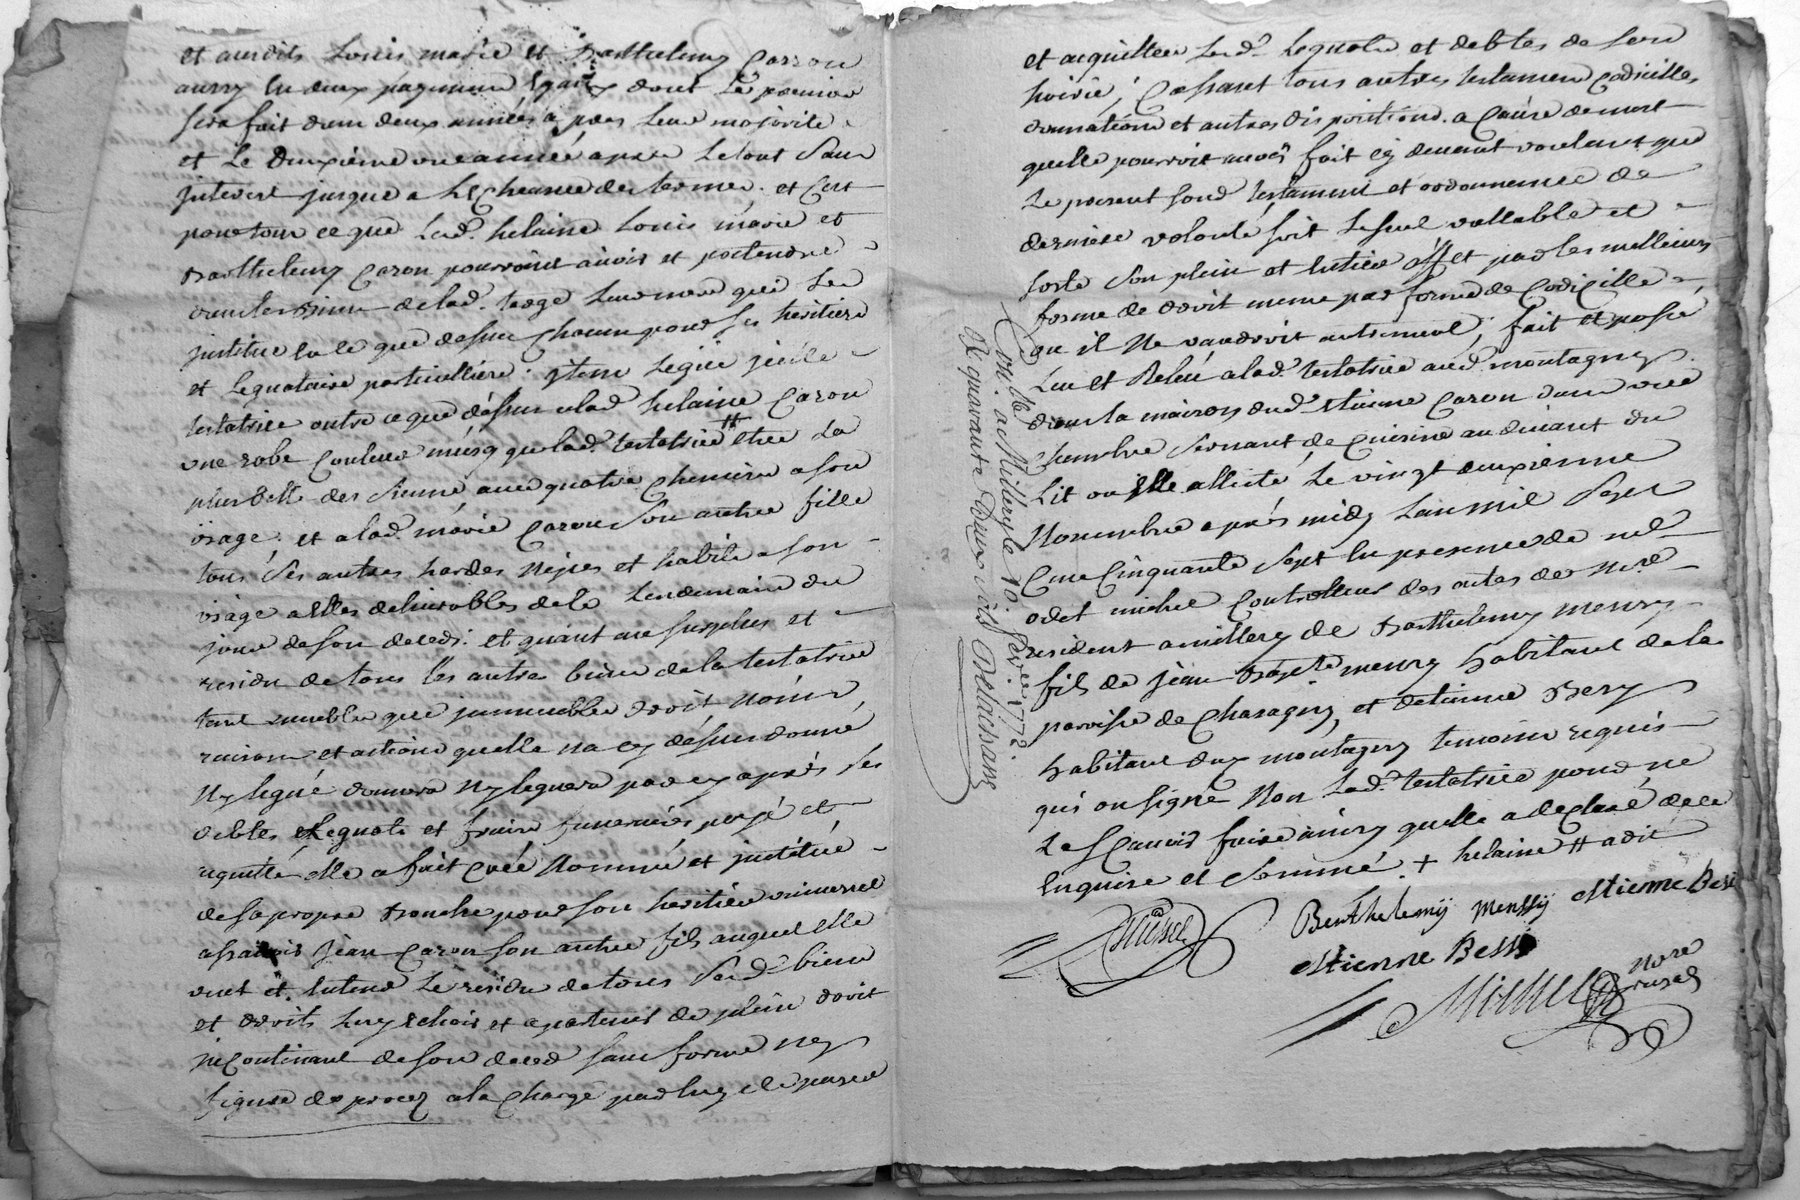 et auxdits Louis marie et Barthelemy Carron
aussy en deux payemens Egaux dont Le premier
sera fait dans deux années apres Leur majorité
et Le deuxième une année apres Le tout sans
jnterest jusque a L'Echeance des termes. et C'est
pour tout ce que Lesd. helaine Louis marie et
Barthelemy Caron pourroint avoir et pretendre
dans les biens de lad. Large Leur mere qui Les
justitue en le que dessus Chacun pour ses héritiers
et Legnataire particulliers. jtem Legue jcelle
testatrice outre ce que dessus a lad. helaine Caron
une robe Couleur musq que lad. testatrice # être La
plus belle des sienne avec quatre Chemises a son
usage. et a lad. marie Caron son autre fille
tous ses autres hardes nipes et habits a son
usage a Elles delivrables de le Lendemain du
jour de son deceds. et quant au surplus et
residu de tous les autres biens de la testatrice
tant meubles que jmmeubles droits noms
raisons et actions quelle na cy dessus donné
Ny legué donnera Ny leguera par cy après ses
debtes Legnats et fraix funeraires payé et
aquitté elle a fait créé Nommé et justitué
de sa propre Bouche pour son heritier universel
a sçavoir jean Caron son autre fils auquel elle
veut et. Entend Le residu de tous sesd. biens
et droits Luy Echoir et apartenir de plein droit
jncontinant de son deced sans forme ny
figure de procez a la Charge par luy de payer
et acquitter Lesd. Legnats et debtes de son
hoirie; Cassant tous autres testamens Codicilles
donnations et autres dispositions. a Cause de mort
quelle pourroit avoir fait cy devant voulant que
Le present son testament et ordonnance de
derniere volonté soit Le seul vallable et
sorte son plein et Entier Effet par les meilleurs
forme de droit meme par forme de Codicille
qu il Ne vaudroit autrement; fait et passé
Leu et Releu a lad. testatrice aud. montagny
dans la maison dud. Etienne Caron dans une
Chambre servant de Cuisine au devant du
Lit ou Elle allité, Le vingt deuxienne
Novembre après midy L'an mil Sept
Cens Cinquante Sept En presence de me
odet michel Controlleur des actes de Nre
resident a millery de Barthelemy menssy
fils de jean Bapte menssy habitant de la
paroisse de Chasagny, et detienne Bessy
habitant dux montagny temoins requis
qui on signé Non Lad. testatrice pour ne
Le sCavoir faire ainsy quelle a declaré de ce
Enquise et sommé. + helaine # a dit
Con.lé. a Millery le 10. fevrier 1773
R quarante Deux sols Delaissaix
Michel
Berthelemij Menssij Etienne Besi
Etienne Bessi
Michel
nore
royal